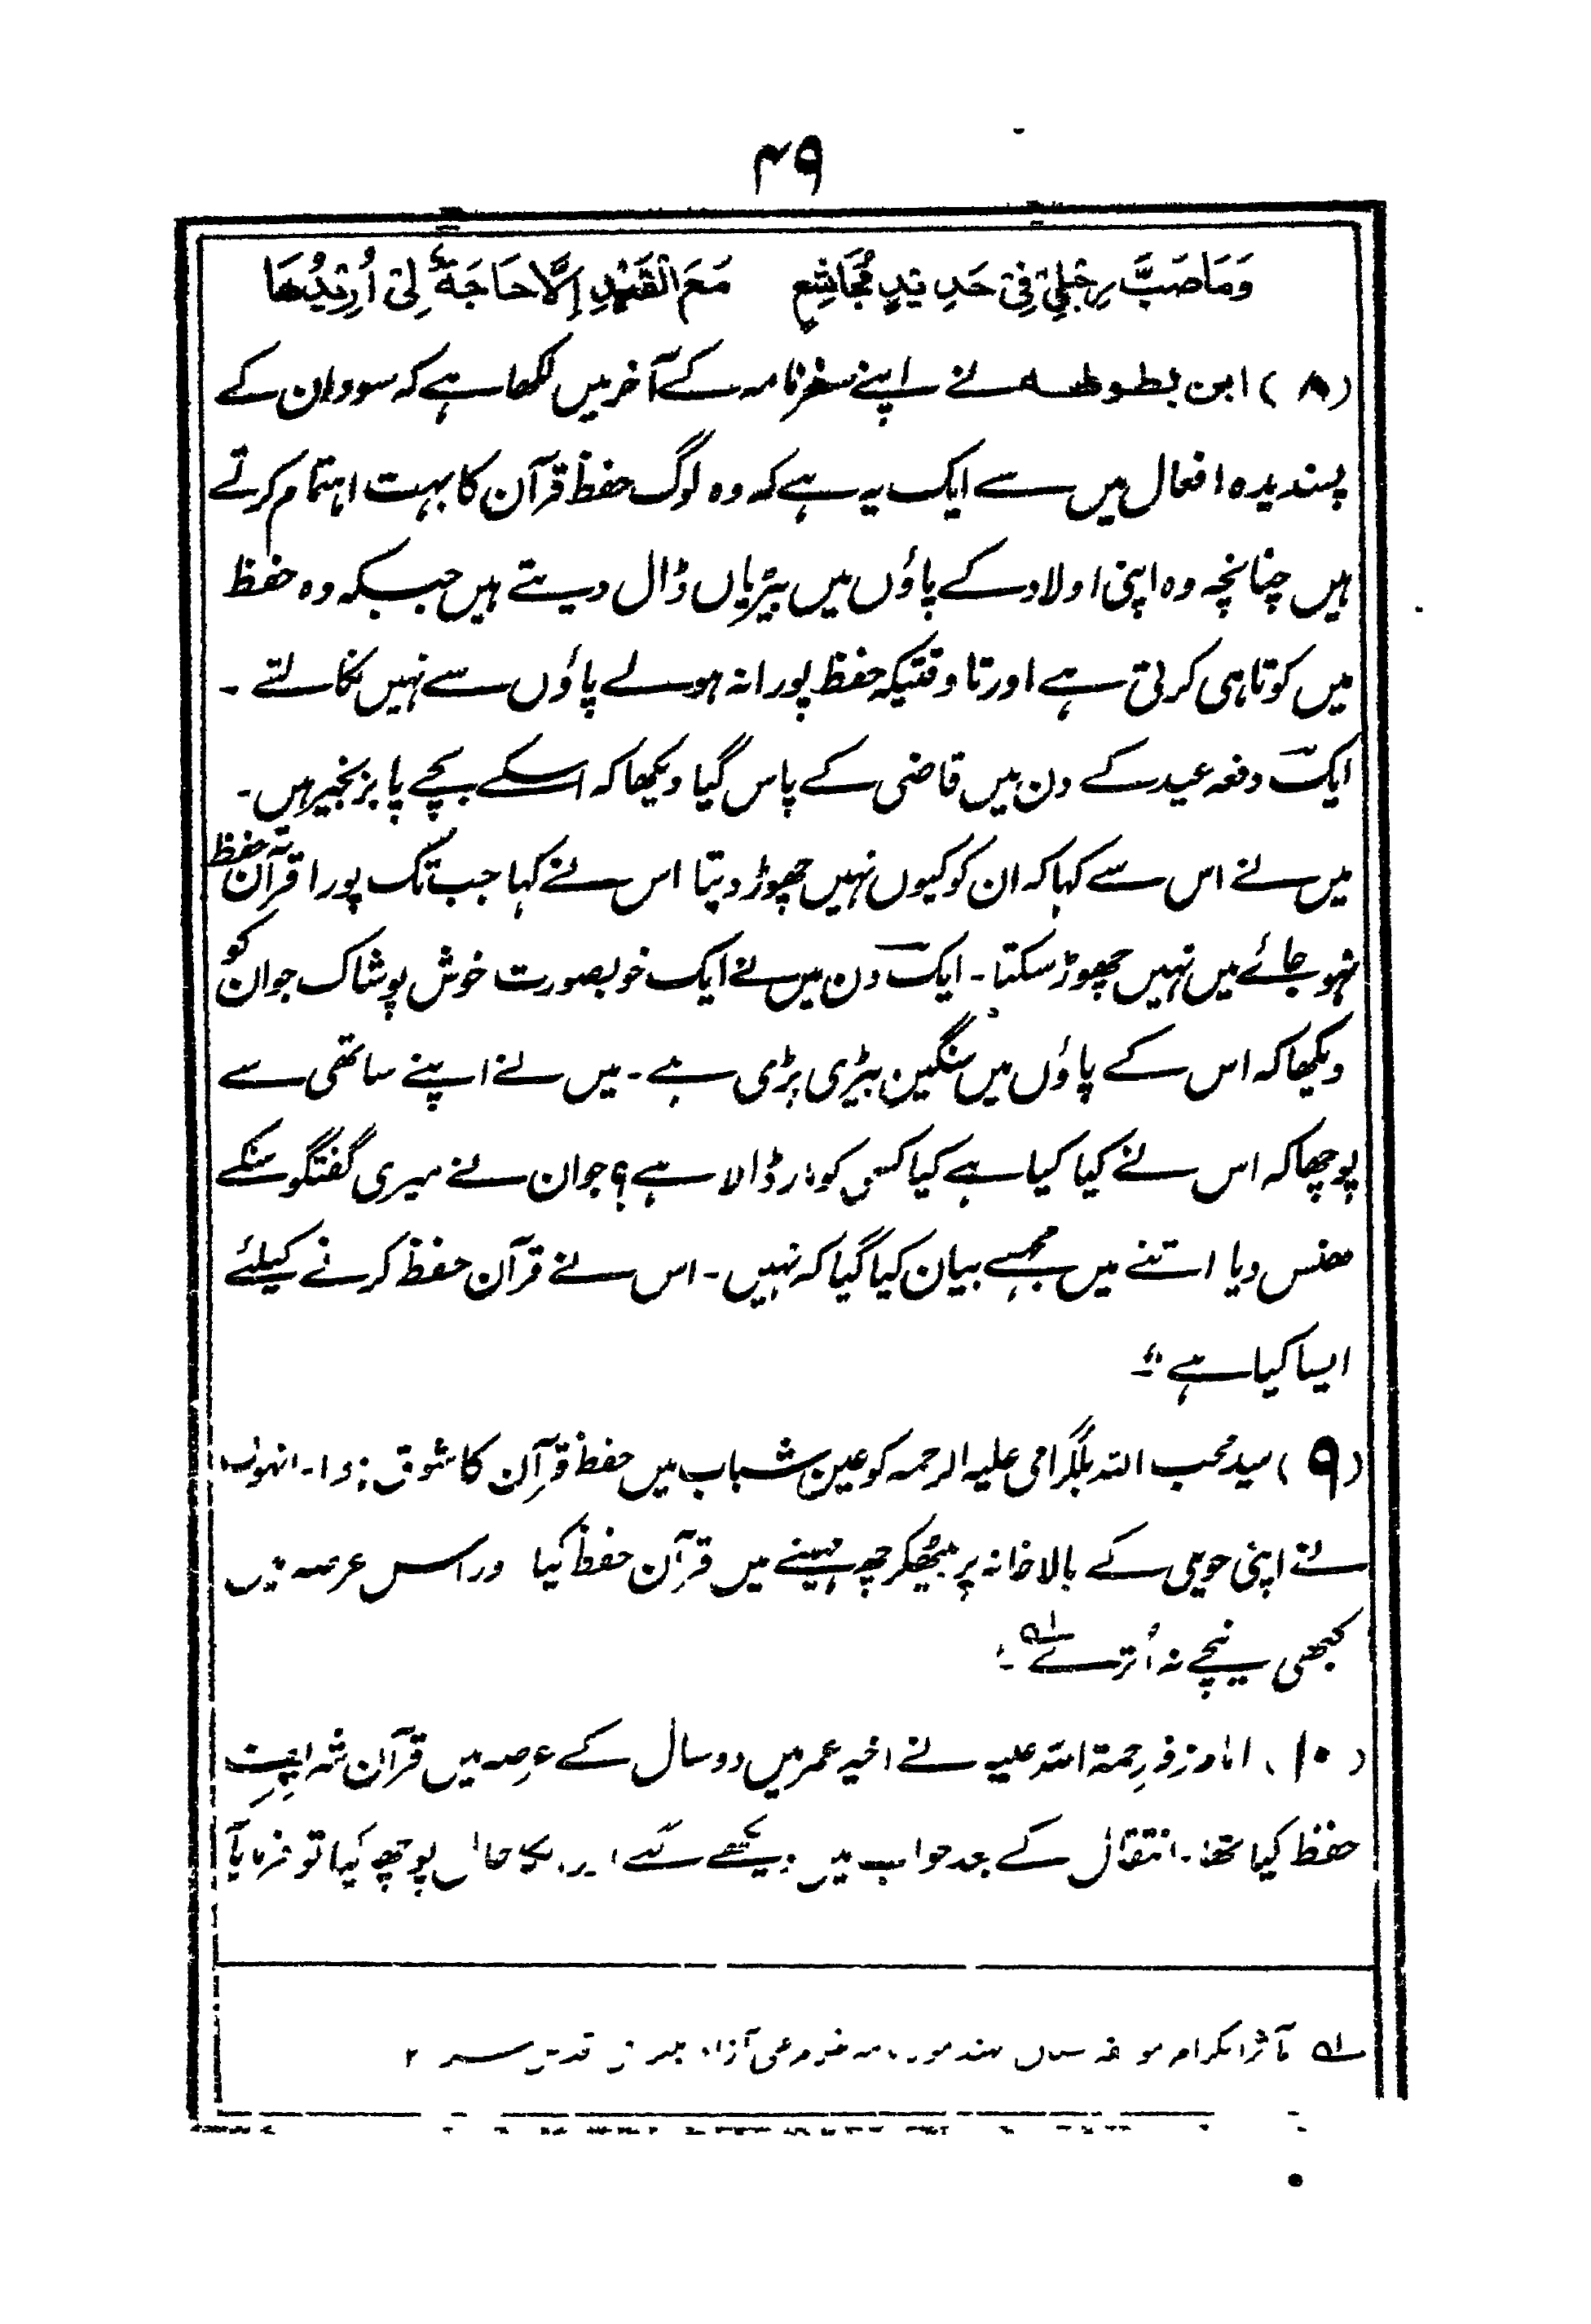 ۴۹
وَمَا صَبَّ رِجْلِیْ فِیْ حَدِیْدِ مُجَاشِعٍ مَعَ الْقَیْدِ اِلَّا حَاجَةٌ لِیْ اُرِیْدُھَا
(۸) ابن بطوطہ نے اپنے سفرنامہ کے آخر میں لکھا ہے کہ سووان کے
پسندیدہ افعال میں سے ایک یہ ہے کہ وہ لوگ حفظ قرآن کا بہت اہتمام کرتے
ہیں چنانچہ وہ اپنی اولاد کے پاؤں میں بیڑیاں ڈال دیتے ہیں جبکہ وہ حفظ
میں کوتاہی کرتی ہے اور تا وقتیکہ حفظ پورا نہ ہولے پاؤں سے نہیں نکالتے ۔
ایک دفعہ عید کے دن میں قاضی کے پاس گیا دیکھا کہ اسکے بچے پا بزنجیر ہیں ۔
میں نے اس سے کہا کہ ان کو کیوں نہیں چھوڑ دیتا اس نے کہا جب تک پورا قرآن حفظ
نہو جائے میں نہیں چھوڑ سکتا ۔ ایک دن میں نے ایک خوبصورت خوش پوشاک جوان کو
دیکھا کہ اس کے پاؤں میں سنگین بیڑی پڑی ہے ۔ میں نے اپنے ساتھی سے
پوچھا کہ اس نے کیا کیا ہے کیا کسی کو مار ڈالا ہے؟ جوان نے میری گفتگو سنکے
ھنس دیا اتنے میں مجھسے بیان کیا گیا کہ نہیں ۔ اس نے قرآن حفظ کرنے کیلئے
ایسا کیا ہے ''۔
(۹) سید محب اللہ بلگرامی علیہ الرحمہ کو عین شباب میں حفظ قرآن کا شوق ہوا ۔ انہوں
نے اپنی حویلی کے بالاخانہ پر بیٹھکر چھ مہینے میں قرآن حفظ کیا اور اس عرصہ میں
کبھی نیچے نہ اُترے ۱؎ ۔
(۱۰) امام زفر رحمۃ اللہ علیہ نے اخیر عمر میں دو سال کے عرصہ میں قرآن شریف
حفظ کیا تھا ۔ انتقال کے بعد خواب میں دیکھے گئے اور حال پوچھا گیا تو فرمایا
۱؎ مآثر الکرام آزاد قدس سرہ ۲